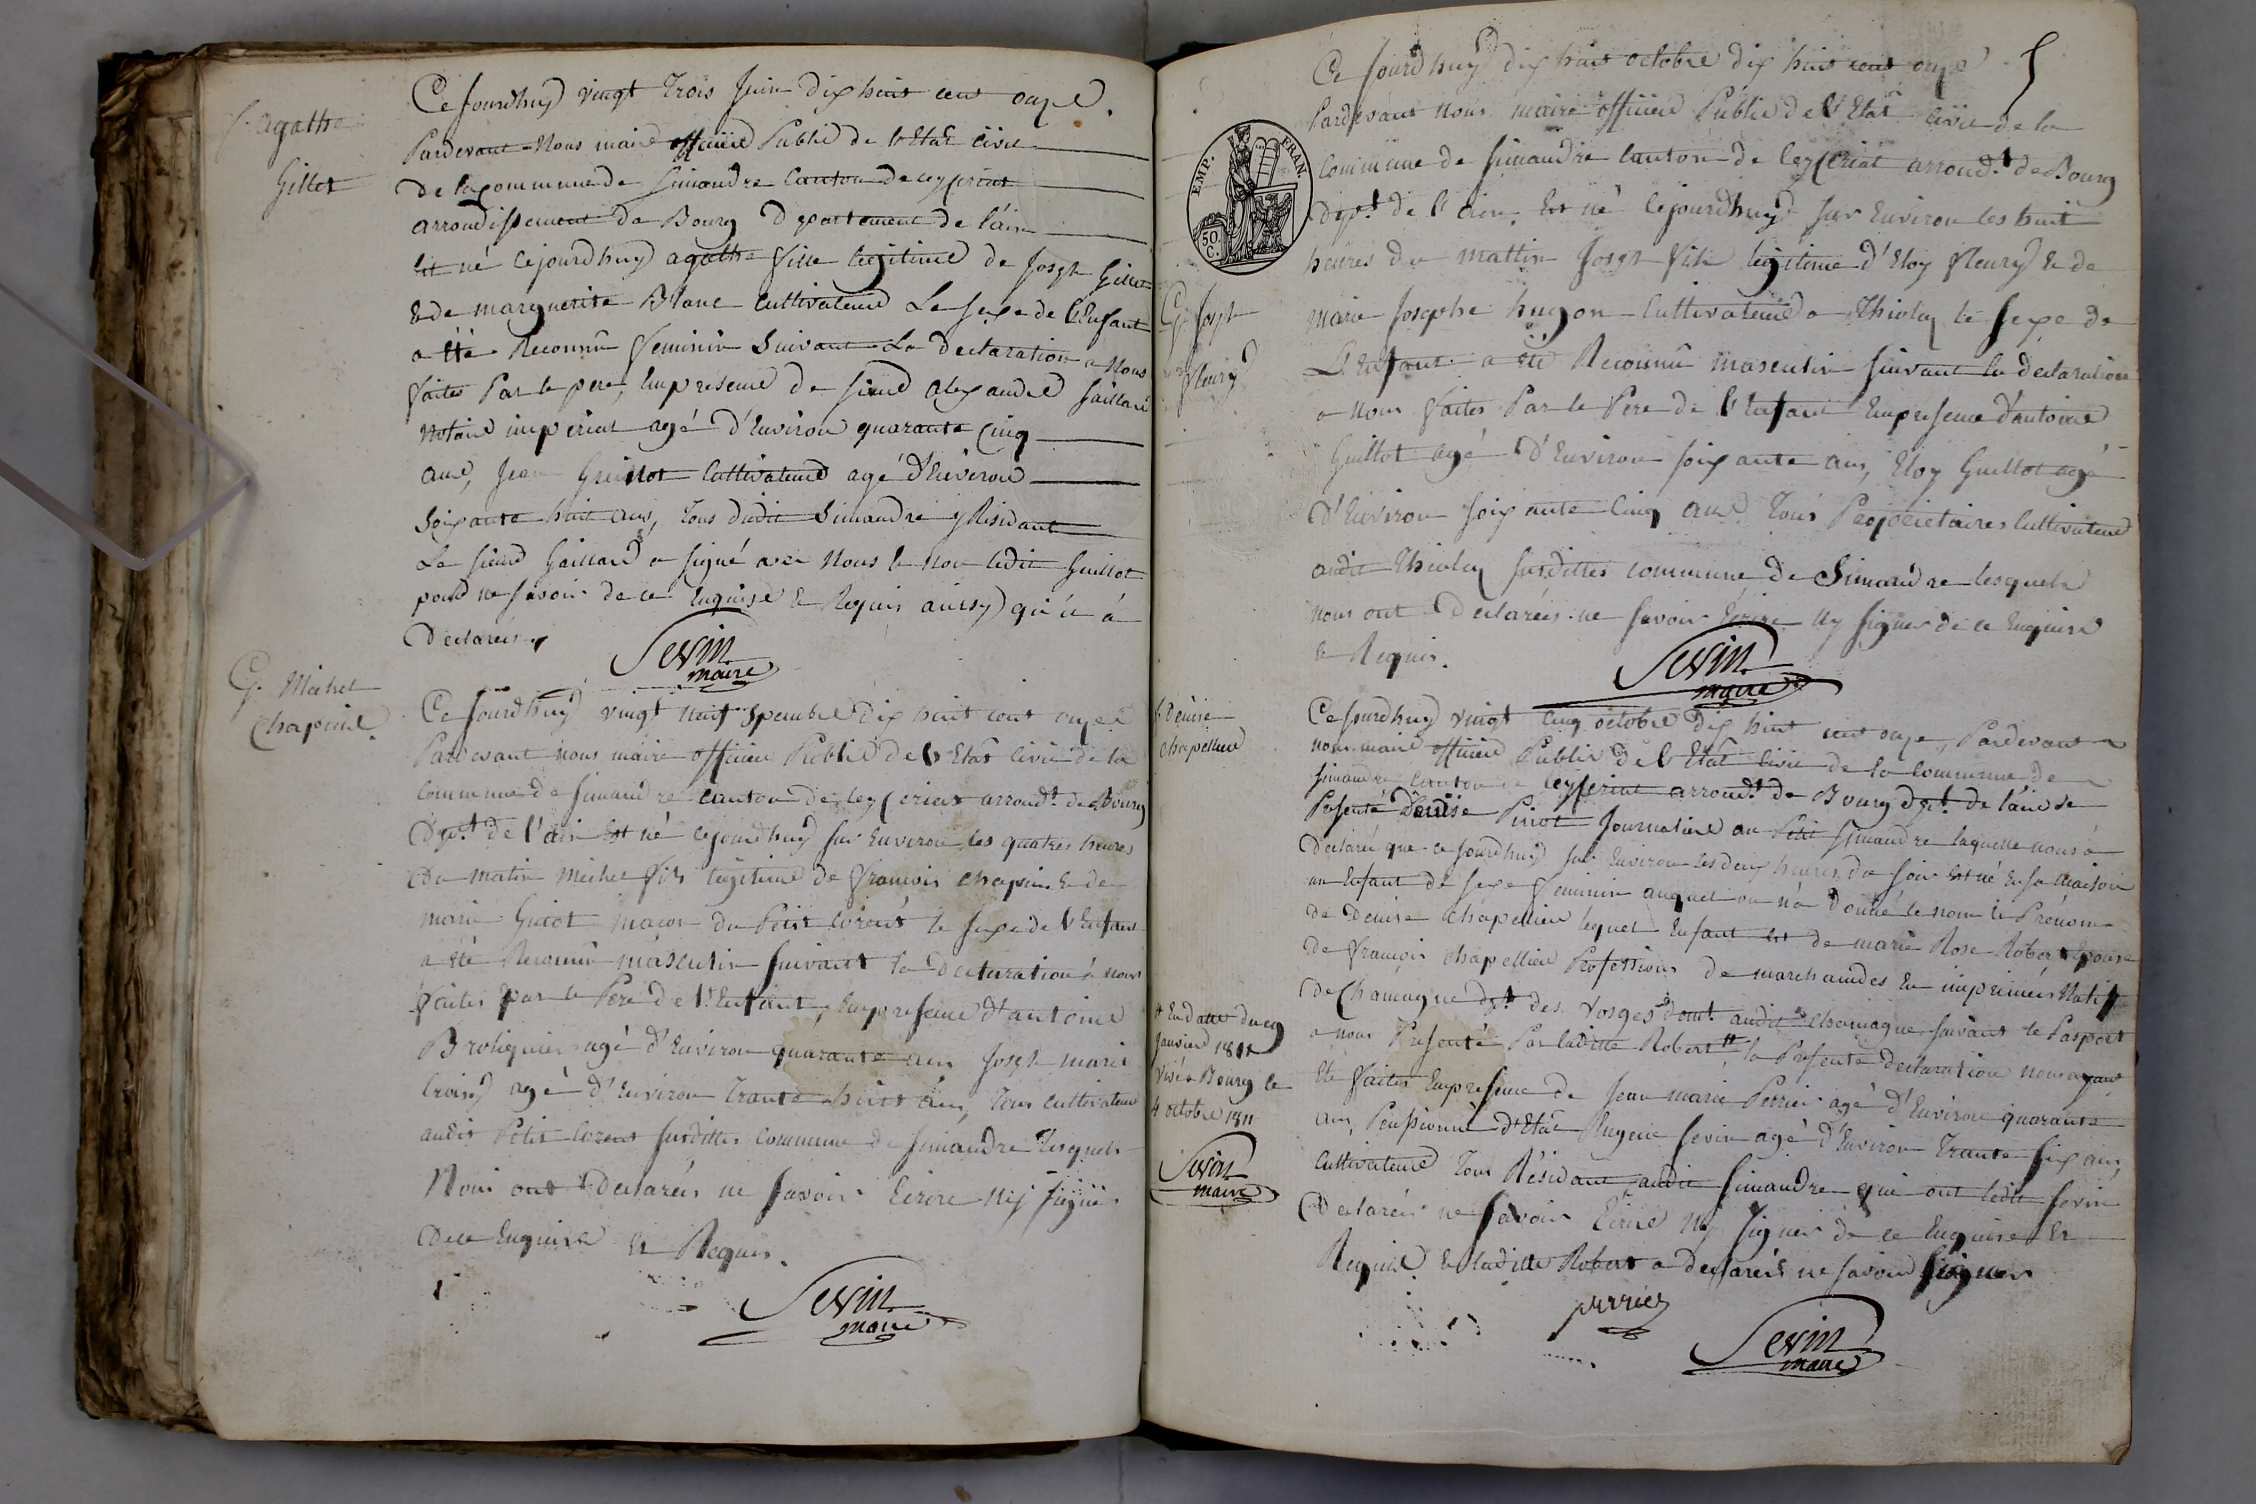 f. agathe
Gillet
Ce Jourdhuy vingt trois Juin dix huit cent onze.
Pardevant Nous maire officier Public de l'Etat civil
de la commune de Simandre canton de ceyzeriat
arrondissement de Bourg Departement de l'ain
Est né cejourdhuy agathe fille legitime de Joseph Gillet
& de marguerite Blanc cultivateurs Le sexe de l'Enfant
a été Reconnu feminin Suivant La declaration a Nous
faites Par le pere, Empresence de sieur alexandre Gaillard
Notaire imperial agé d'Environ quarante cinq
ans, Jean Guillot cultivateur agé d'Environ
Soixante huit ans, tous dudit Simandre y Résidant
Le sieur Gaillard a signé avec Nous & non ledit Guillot
pour ne savoir de ce Enquise & Requis ainsy qu'il a
Declarés.
Sevin
maire
G. Michel
Chapuis
Ce Jourdhuy vingt neuf Spembre Dix huit cent onze
Pardevant nous maire officier Public de l'Etat civil de la
Commune de Simandre canton de Ceyzeriat arrondt. de Bourg
Dpt. de l'ain Est né cejourdhuy sur Environ les quatres heures
du matin Michel fils legitime de françois chapuis & de
marie Guiot maçon du Petit Corent le sexe de l'Enfant
a été Reconnu masculin suivant la declaration à nous
faites par le Pere de l'Enfant, Empresence d'antoine
Broliquier agé d'Environ quarante ans Joseph marie
Croisy agé d'Environ trante huit ans, tous cultivateur
audit Petit Corent susdittes commune de Simandre lesquels
Nous ont declarés ne savoir Ecrire Ny signer
dece Enquise & Requis.
Sevin
maire
5
EMP. FRAN.
50. C.
Ce Jourdhuy dix huit octobre dix huit cent onze
Pardevant nous maire officier Public de l'Etat civil de la
Commune de Simandre canton de Ceyzeriat arrondt. de Bourg
Dept. de l'ain. Est né Cejourdhuy sur Environ les huit
heures du mattin Joseph fils légitime d'Eloy fleury & de
G. Joseph
fleury
marie Josephe hugon Cultivateurs a Thioley le sexe de
L'Enfant a été Reconnu masculin suivant la déclaration
a nous faites Par le Pere de l'Enfant Empresence d'antoine
Guillot agé d'Environ soixante ans, Eloy Guillot agé
d'Environ soixante cinq ans tous Proprietaires Cultivateurs
audit Thioley susdittes commune de Simandre lesquels
nous ont declarés ne savoir Ecrire ny signer de ce Enquise
& Requis.
Sevin
maire
f. Denise
Chapellier
Ce Jourdhuy vingt cinq octobre dix huit cent onze, Pardevant
nous maire officier Public de l'Etat Civil de la Commune de
Simandre Canton de Ceyzeriat arrondt. de Bourg dpt. de l'ain se
Présenté Denise Pinot Journaliere au Petit Simandre laquelle nous à
déclaré que ce Jourdhuy sur Environ les deux heures du soir Est né En sa maison
un Enfant de sexe feminin auquel on n'a Donné le nom & Prénom
de Denise Chapellier lequel Enfant est de marie Rose Robert Epouse
de françois chapellier Professions de marchandes En imprimés Natif
de Chamagne dpt. des Vosges domt. audit Chamagne suivant le Pasport
a nous Présenté Par laditte Robert # la Presente declaration nous ayant
# En datte du cinq
Janvier 1811
visé a Bourg le
4 octobre 1811
Sevin
maire
été faites Empresence de Jean marie Perrier agé d'Environ quarante
ans, Pensionné d'Etat Eugene sevin agé d'Environ trante six ans,
cultivateur tous Résidant audit Simandre que ont ledit sevin
Declarés ne savoir Ecrire ny signer de ce Enquise &
Requise & laditte Robert a declarés ne savoir signer
perrier
Sevin
maire